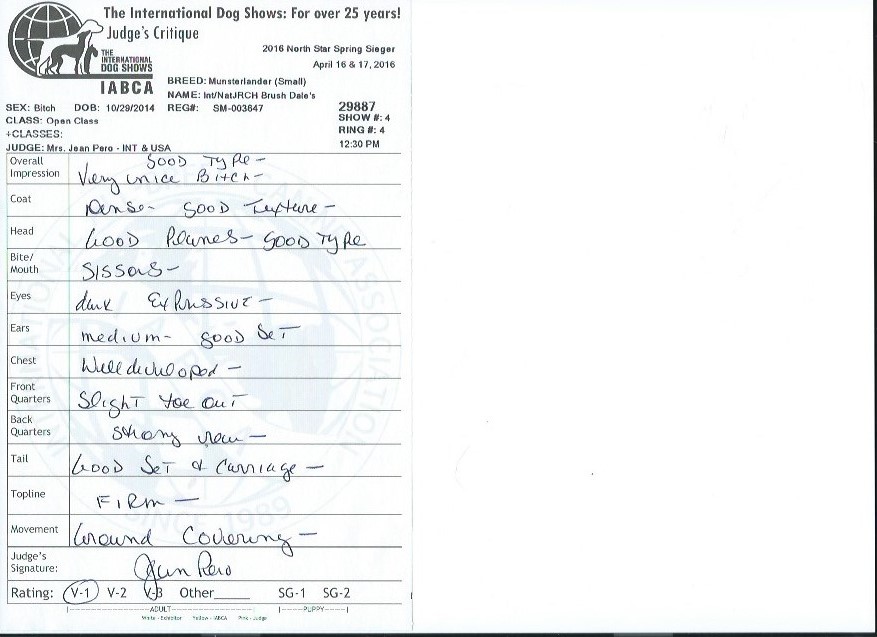 The International Dog Shows: For over 25 years!
Judge's Critique
2016 North Star Spring Sieger
April 16 & 17, 2016
THE INTERNATIONAL DOG SHOWS
IABCA
BREED: Munsterlander (Small)
NAME: Int/NatJRCH Brush Dale's
SEX: Bitch DOB: 10/29/2014 REG#: SM-003647 29887
CLASS: Open Class SHOW #: 4
+CLASSES: RING #: 4
JUDGE: Mrs. Jean Pero - INT & USA 12:30 PM
Overall Impression GOOD Type -
Very nice Bitch -
Coat Dense - GOOD Texture -
Head GOOD Planes - GOOD Type
Bite/ Mouth SISSORS -
Eyes dark Expressive -
Ears medium - good SeT
Chest Well developed -
Front Quarters Slight toe ouT
Back Quarters Strong rear -
Tail GOOD SeT & Carriage -
Topline FIRM -
Movement Ground Covering -
Judge's Signature: Jean Pero
Rating: V-1 V-2 V-3 Other_____ SG-1 SG-2
ADULT PUPPY
White - Exhibitor Yellow - IABCA Pink - Judge
SINCE 1989